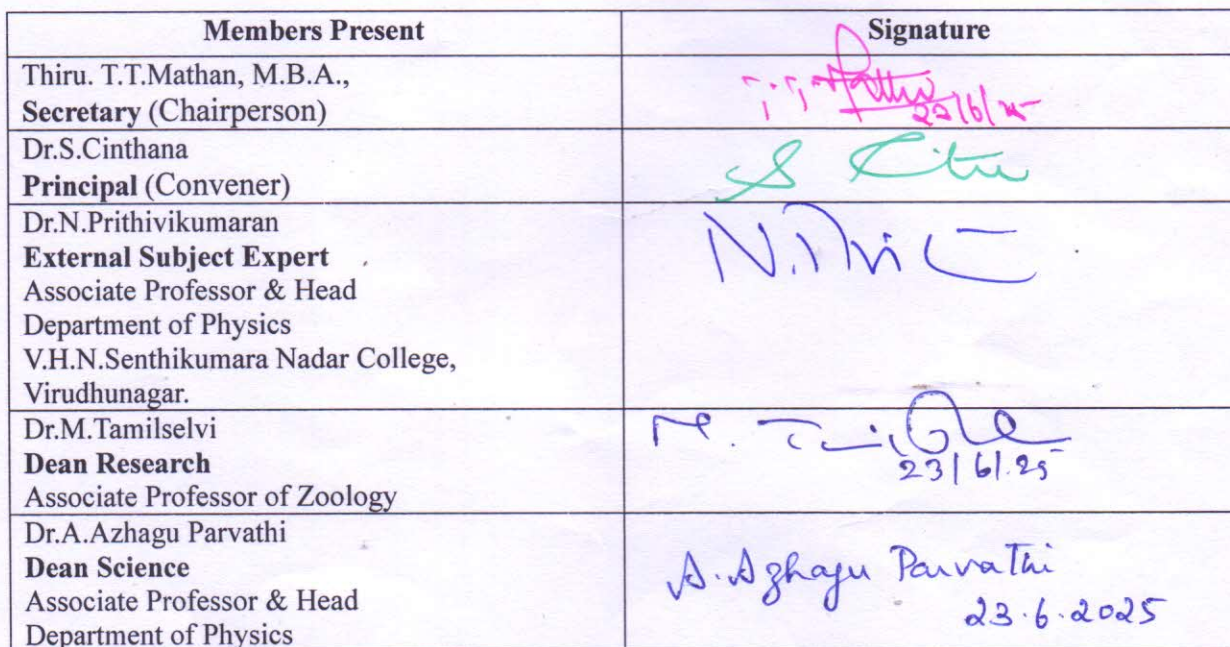 Members Present
Signature
Thiru. T.T.Mathan, M.B.A.,
Secretary (Chairperson)
Dr.S.Cinthana
Principal (Convener)
S
Dr.N.Prithivikumaran
External Subject Expert
Associate Professor & Head
Department of Physics
V.H.N.Senthikumara Nadar College,
Virudhunagar.
Dr.M.Tamilselvi
Dean Research
Associate Professor of Zoology
23/6/.25
Dr.A.Azhagu Parvathi
Dean Science
Associate Professor & Head
Department of Physics
A. Azhagu Parvathi
23.6.2025